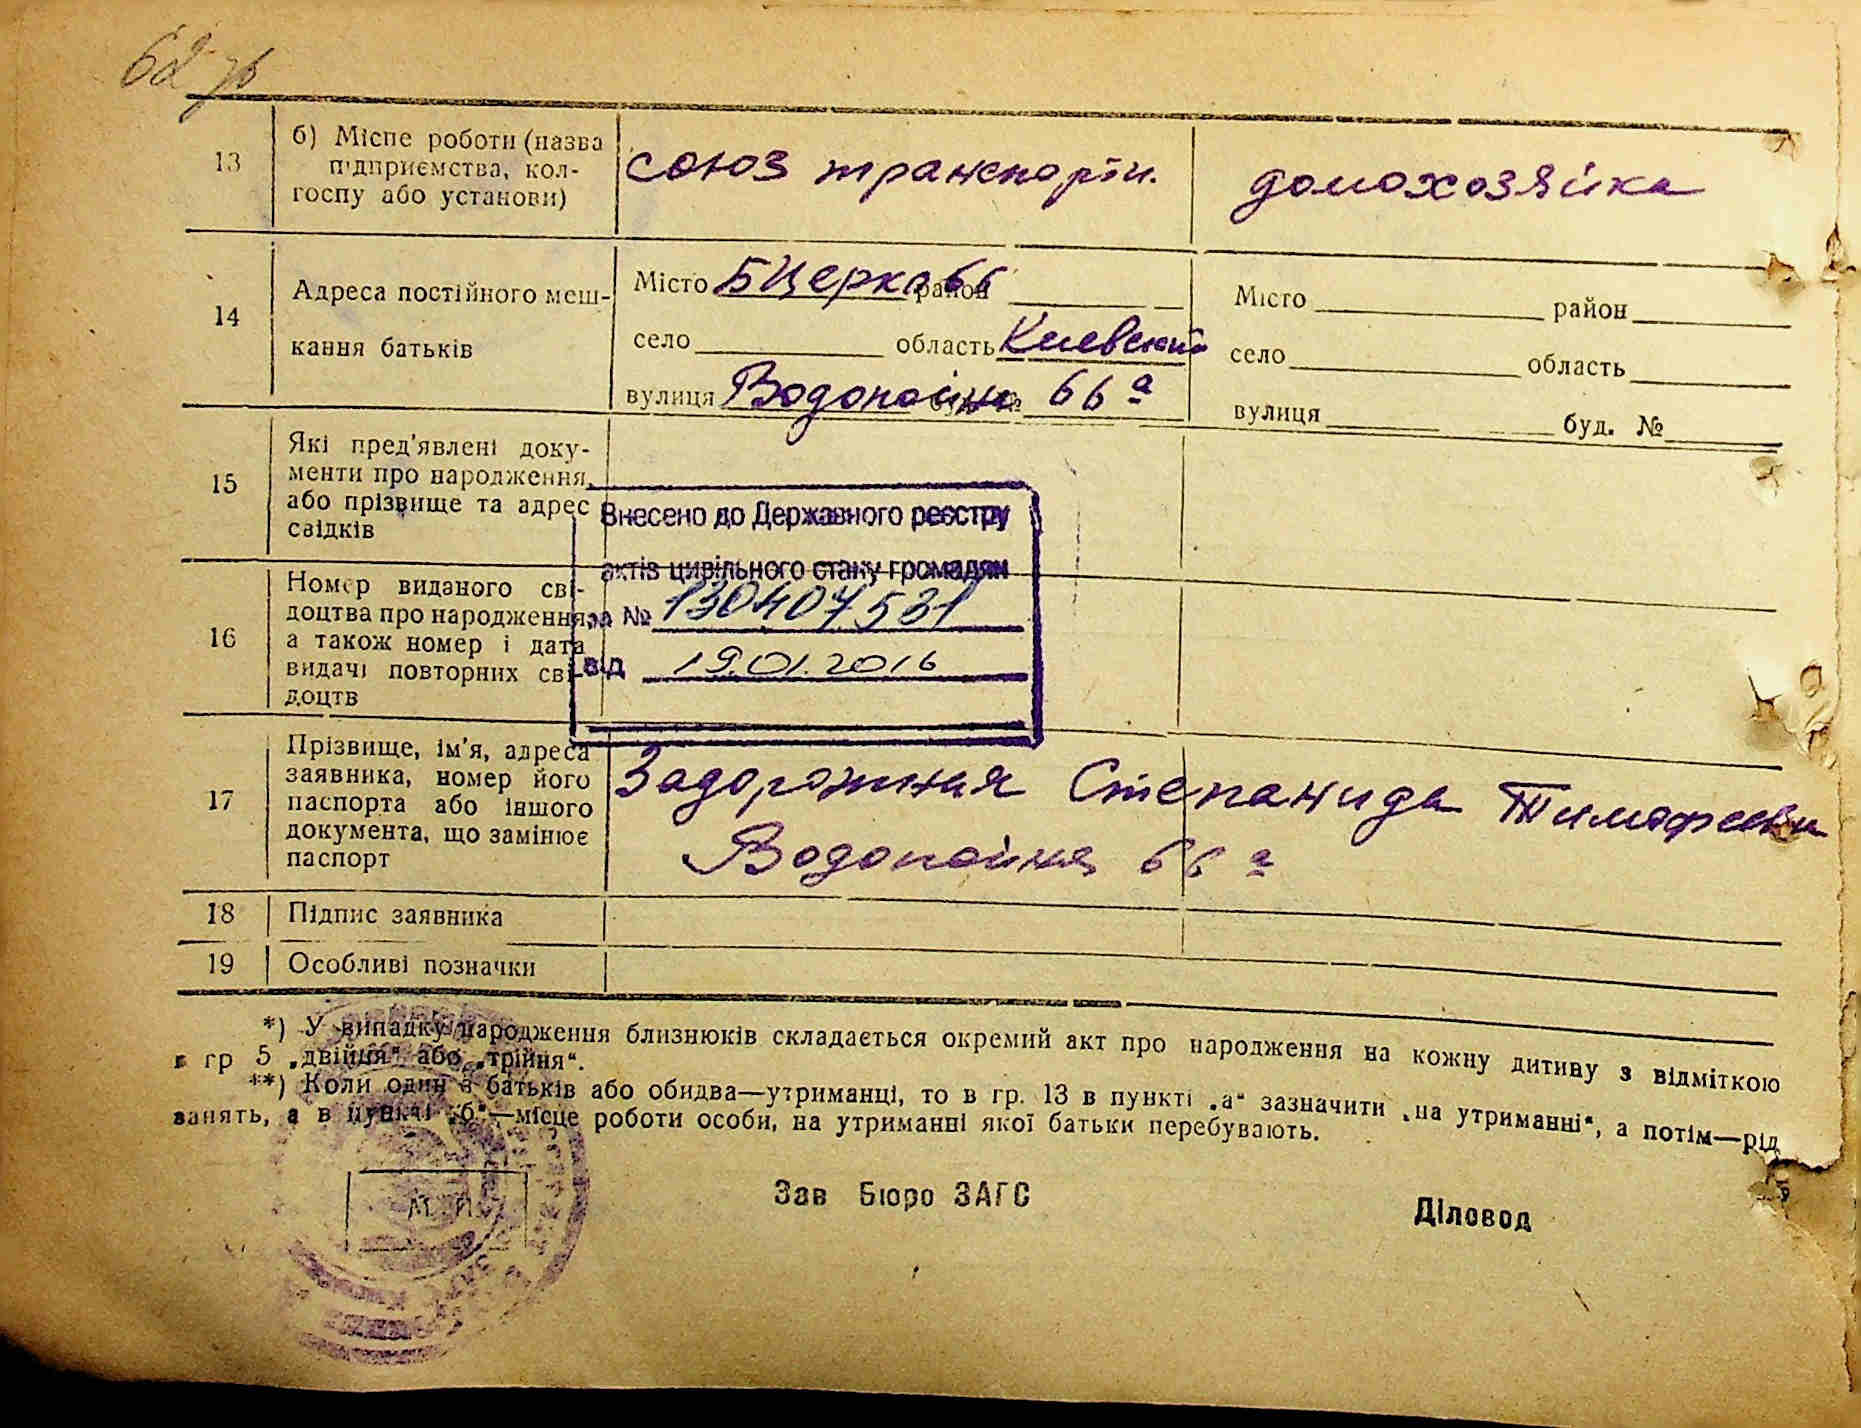 62 зв
13
б) Місце роботи (назва
підприємства, кол-
госпу або установи)
союз транспортн.
домохозяйка
14
Адреса постійного меш-
кання батьків
Місто Б Церква район
село область Киевский
вулиця Водопойна буд. № 66 а
Місто район
село область
вулиця буд. №
15
Які пред'явлені доку-
менти про народження,
або прізвище та адрес
свідків
16
Номер виданого сві-
доцтва про народження,
а також номер і дата
видачі повторних сві-
доцтв
Внесено до Державного реєстру
актів цивільного стану громадян
за № 130407531
від 19.01.2016
17
Прізвище, ім'я, адреса
заявника, номер його
паспорта або іншого
документа, що замінює
паспорт
Задорожная Степанида Тимофеевн
Водопойная 66 а
18
Підпис заявника
19
Особливі позначки
*) У випадку народження близнюків складається окремий акт про народження на кожну дитину з відміткою
в гр 5 „двійня“ або „трійня“.
**) Коли один з батьків або обидва—утриманці, то в гр. 13 в пункті „а“ зазначити „на утриманні“, а потім—рід
занять, а в пункті „б“—місце роботи особи, на утриманні якої батьки перебувають.
М. П.
Зав Бюро ЗАГС
Діловод